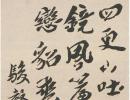 四更山吐
鏡風簾
戀貂裘
駿